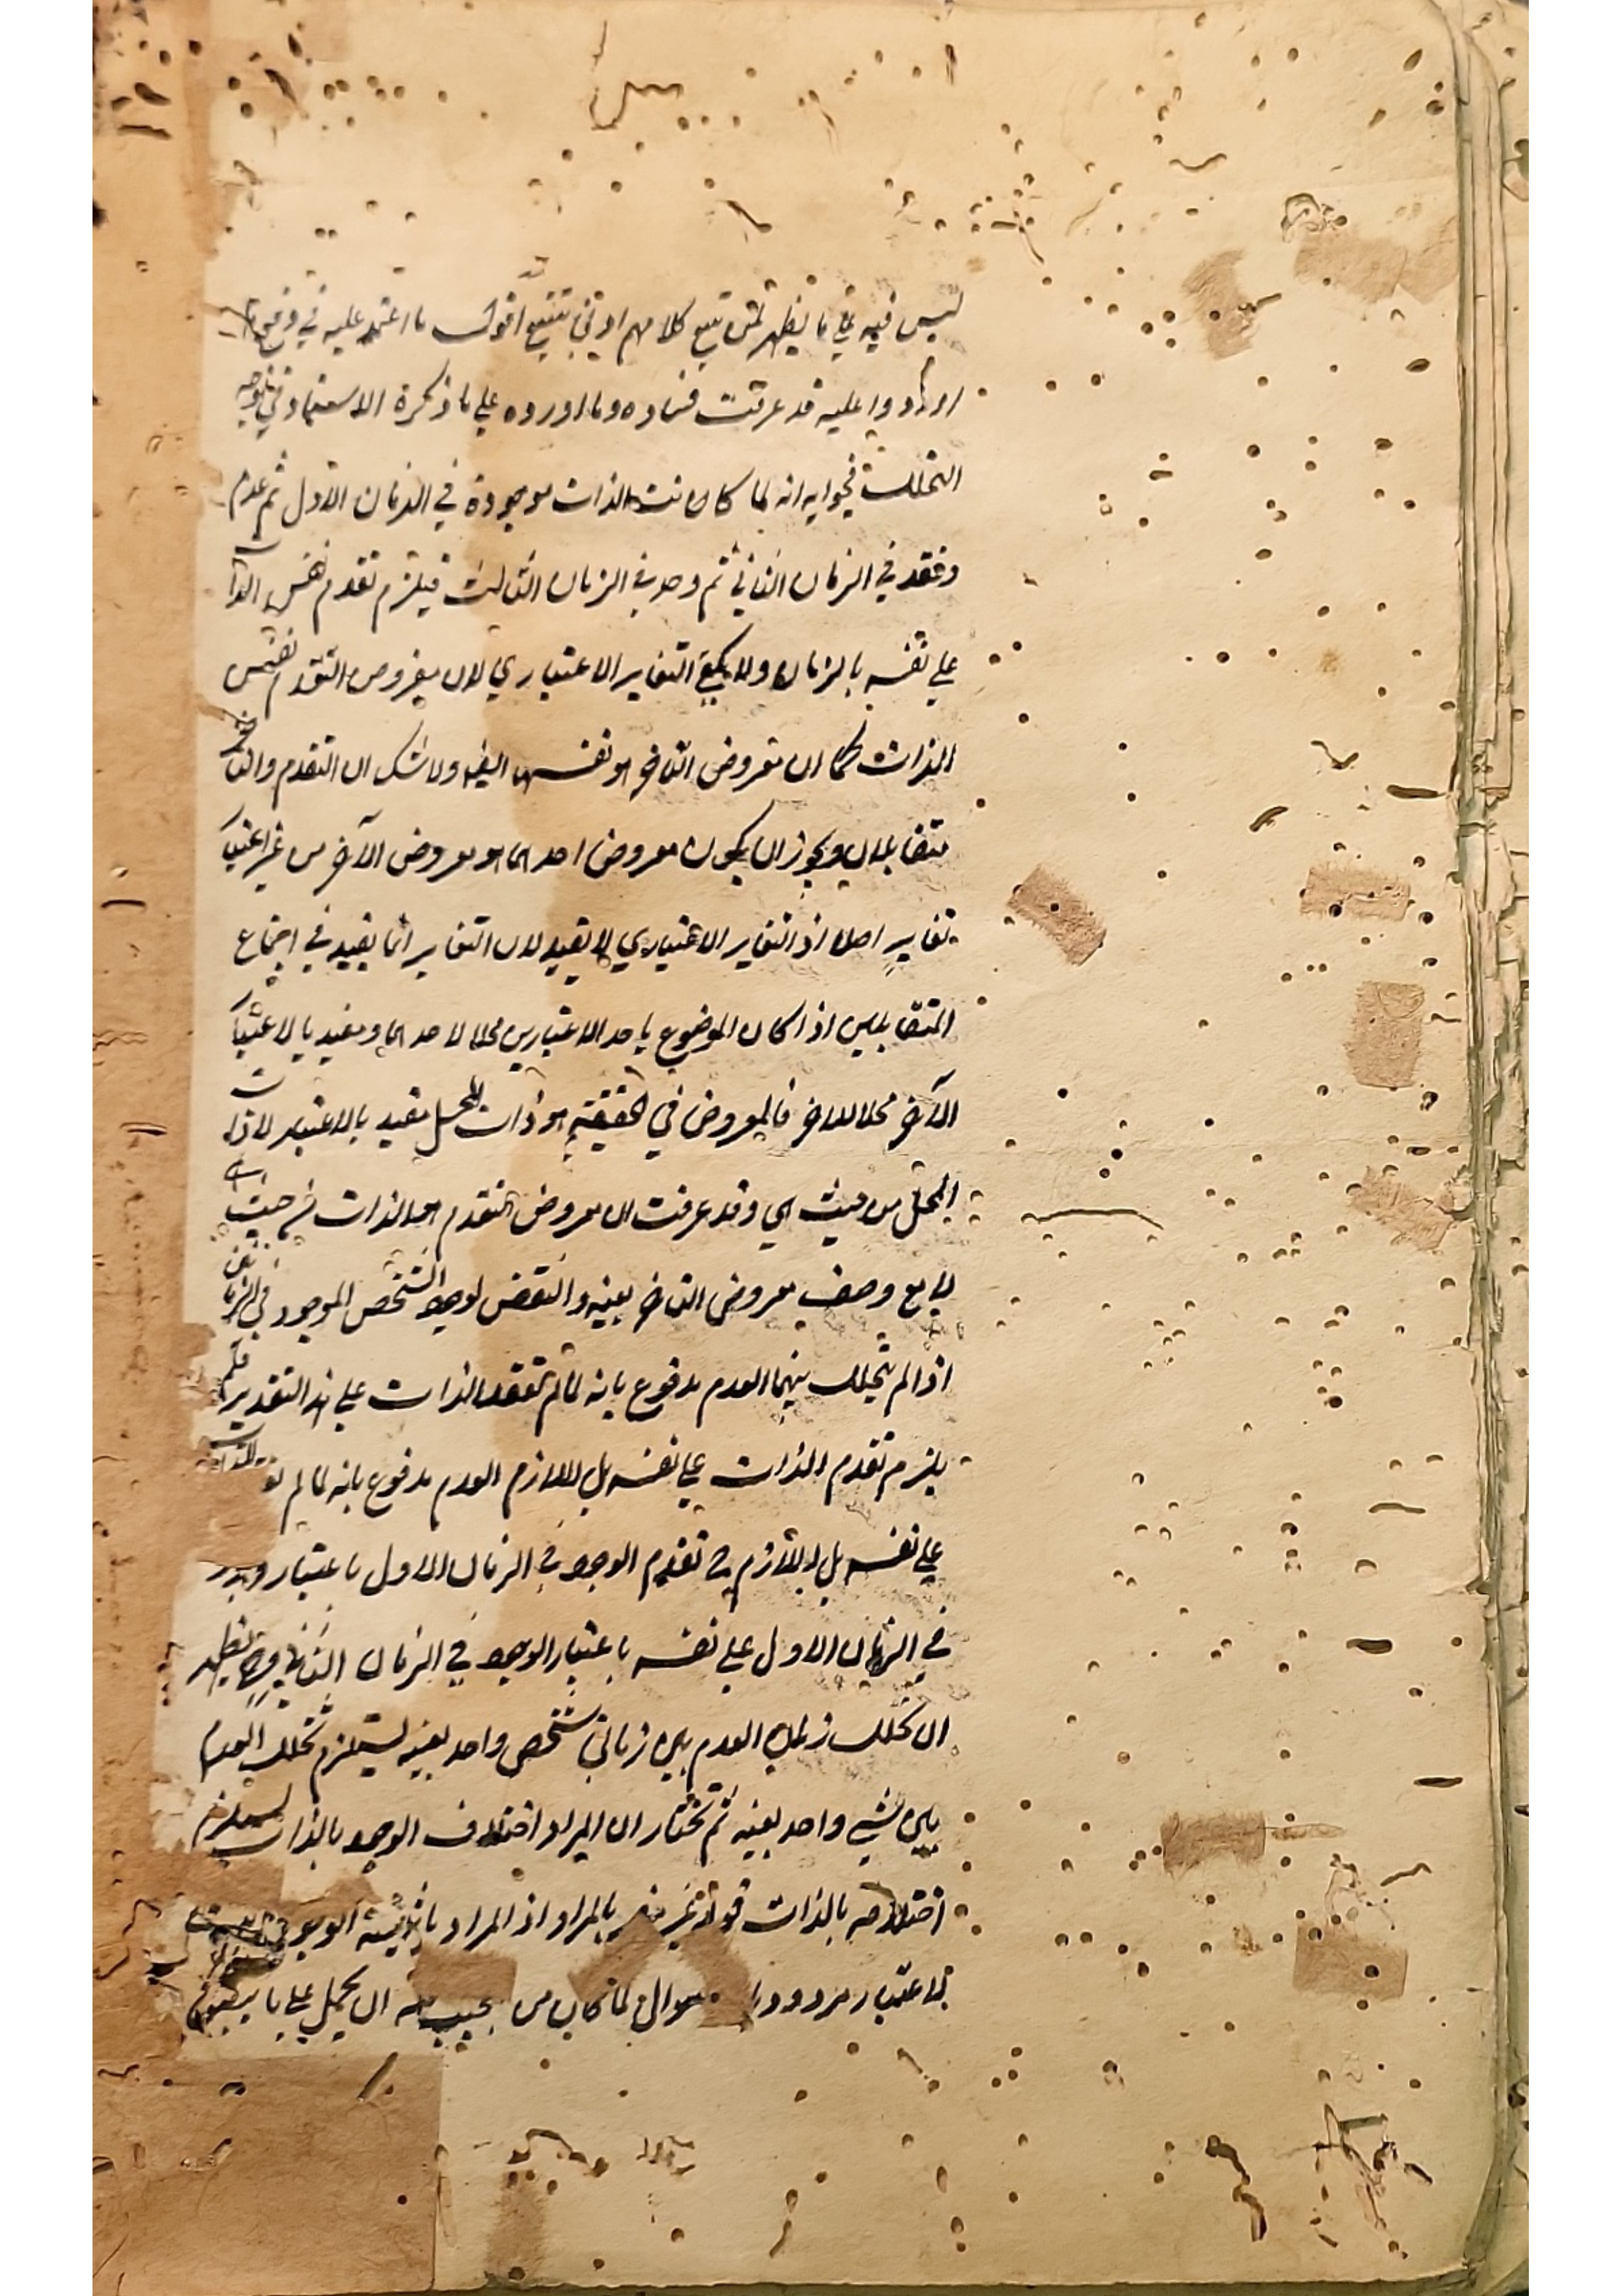 ليس فيه على ما يظهر لمن تتبع كلامهم اونى تتبع اقول ما اعتمد عليه في دفع ما
اوردوا عليه قد عرفت فساده وما اورده على ما ذكره الاستاد في توجيه
التخلل فجوابه انه لما كانت الذات موجودة في الزمان الاول ثم عدم
وفقد في الزمان الثاني ثم وجد في الزمان الثالث فيلزم تقدم نفس الذات
على نفسه بالزمان ولا يكفي التغاير الاعتباري لان معروض التقدم نفس
الذات كما ان معروض التاخر هو نفسها ايضا ولا شك ان التقدم والتاخر
متقابلان ويجوز ان يكون معروض احدهما هو معروض الآخر من غير اعتبار
تغاير اصلا اذ التغاير الاعتباري لا يفيد لان التغاير انما يفيد في اجتماع
المتقابلين اذا كان الموضوع باحد الاعتبارين محلا لاحدهما ومقيد بالاعتبار
الآخر محلا للاخر فالمعروض في الحقيقة هو ذات المحل مقيد بالاعتبار لا ذات
المحل من حيث هي وقد عرفت ان معروض التقدم هو الذات من حيث
مع وصف معروض التاخر بعينه والنقض لوجود الشخص الموجود في
اذا لم يتخلل بينهما العدم مدفوع بانه لما لم تفقد الذات على هذا التقدير فلم
يلزم تقدم الذات على نفسه بل اللازم العدم مدفوع بانه لما لم
على نفسه بل اللازم ح تقدم الوجود في الزمان الاول باعتبار وجود
في الزمان الاول على نفسه باعتبار الوجود في الزمان الثاني وح يظهر
ان تخلل زمان العدم بين زماني شخص واحد بعينه يستلزم تخلل العدم
بين شيء واحد بعينه ثم نختار ان المراد اختلاف الوجود بالذات يستلزم
اختلافه بالذات قوله غير بالمراد اذ المراد الوجود
الاعتبار مردود سوال لما كان من ان يحمل على ما